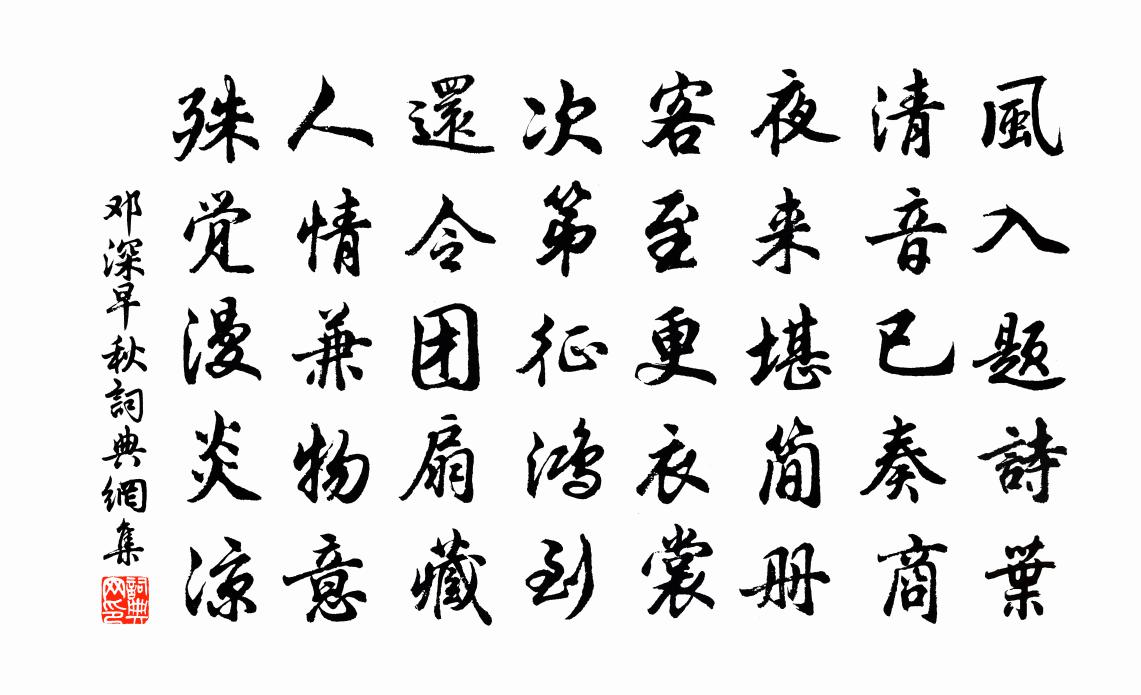 風入題詩葉
清音已奏商
夜来堪简册
客至更衣裳
次第征鸿到
還令团扇藏
人情兼物意
殊觉漫炎凉
邓深早秋詞典網集
詞典网印